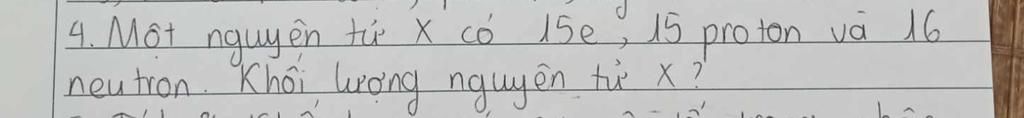 4. Một nguyên tử X có 15e, 15 proton và 16
neutron. Khối lượng nguyên tử X?